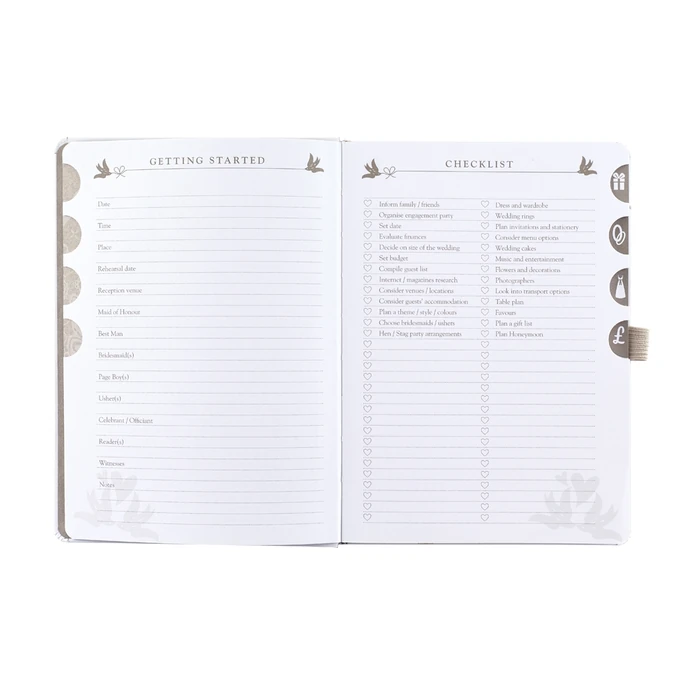 GETTING STARTED
Date
Time
Place
Rehearsal date
Reception venue
Maid of Honour
Best Man
Bridesmaid(s)
Page Boy(s)
Usher(s)
Celebrant / Officiant
Reader(s)
Witnesses
Notes
CHECKLIST
Inform family / friends
Organise engagement party
Set date
Evaluate finances
Decide on size of the wedding
Set budget
Compile guest list
Internet / magazines research
Consider venues / locations
Consider guests' accommodation
Plan a theme / style / colours
Choose bridesmaids / ushers
Hen / Stag party arrangements
Dress and wardrobe
Wedding rings
Plan invitations and stationery
Consider menu options
Wedding cakes
Music and entertainment
Flowers and decorations
Photographers
Look into transport options
Table plan
Favours
Plan a gift list
Plan Honeymoon
£